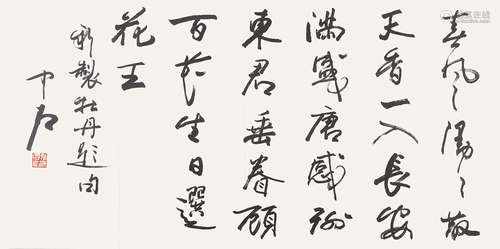 春風蕩々散
天香一入長安
滿盛唐感謝
東君垂眷顧
百花生日選
花王
新製牡丹題句
中石